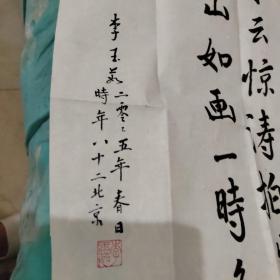 云惊涛拍
如画一時
李玉
二零零五年春日
時年八十二北京